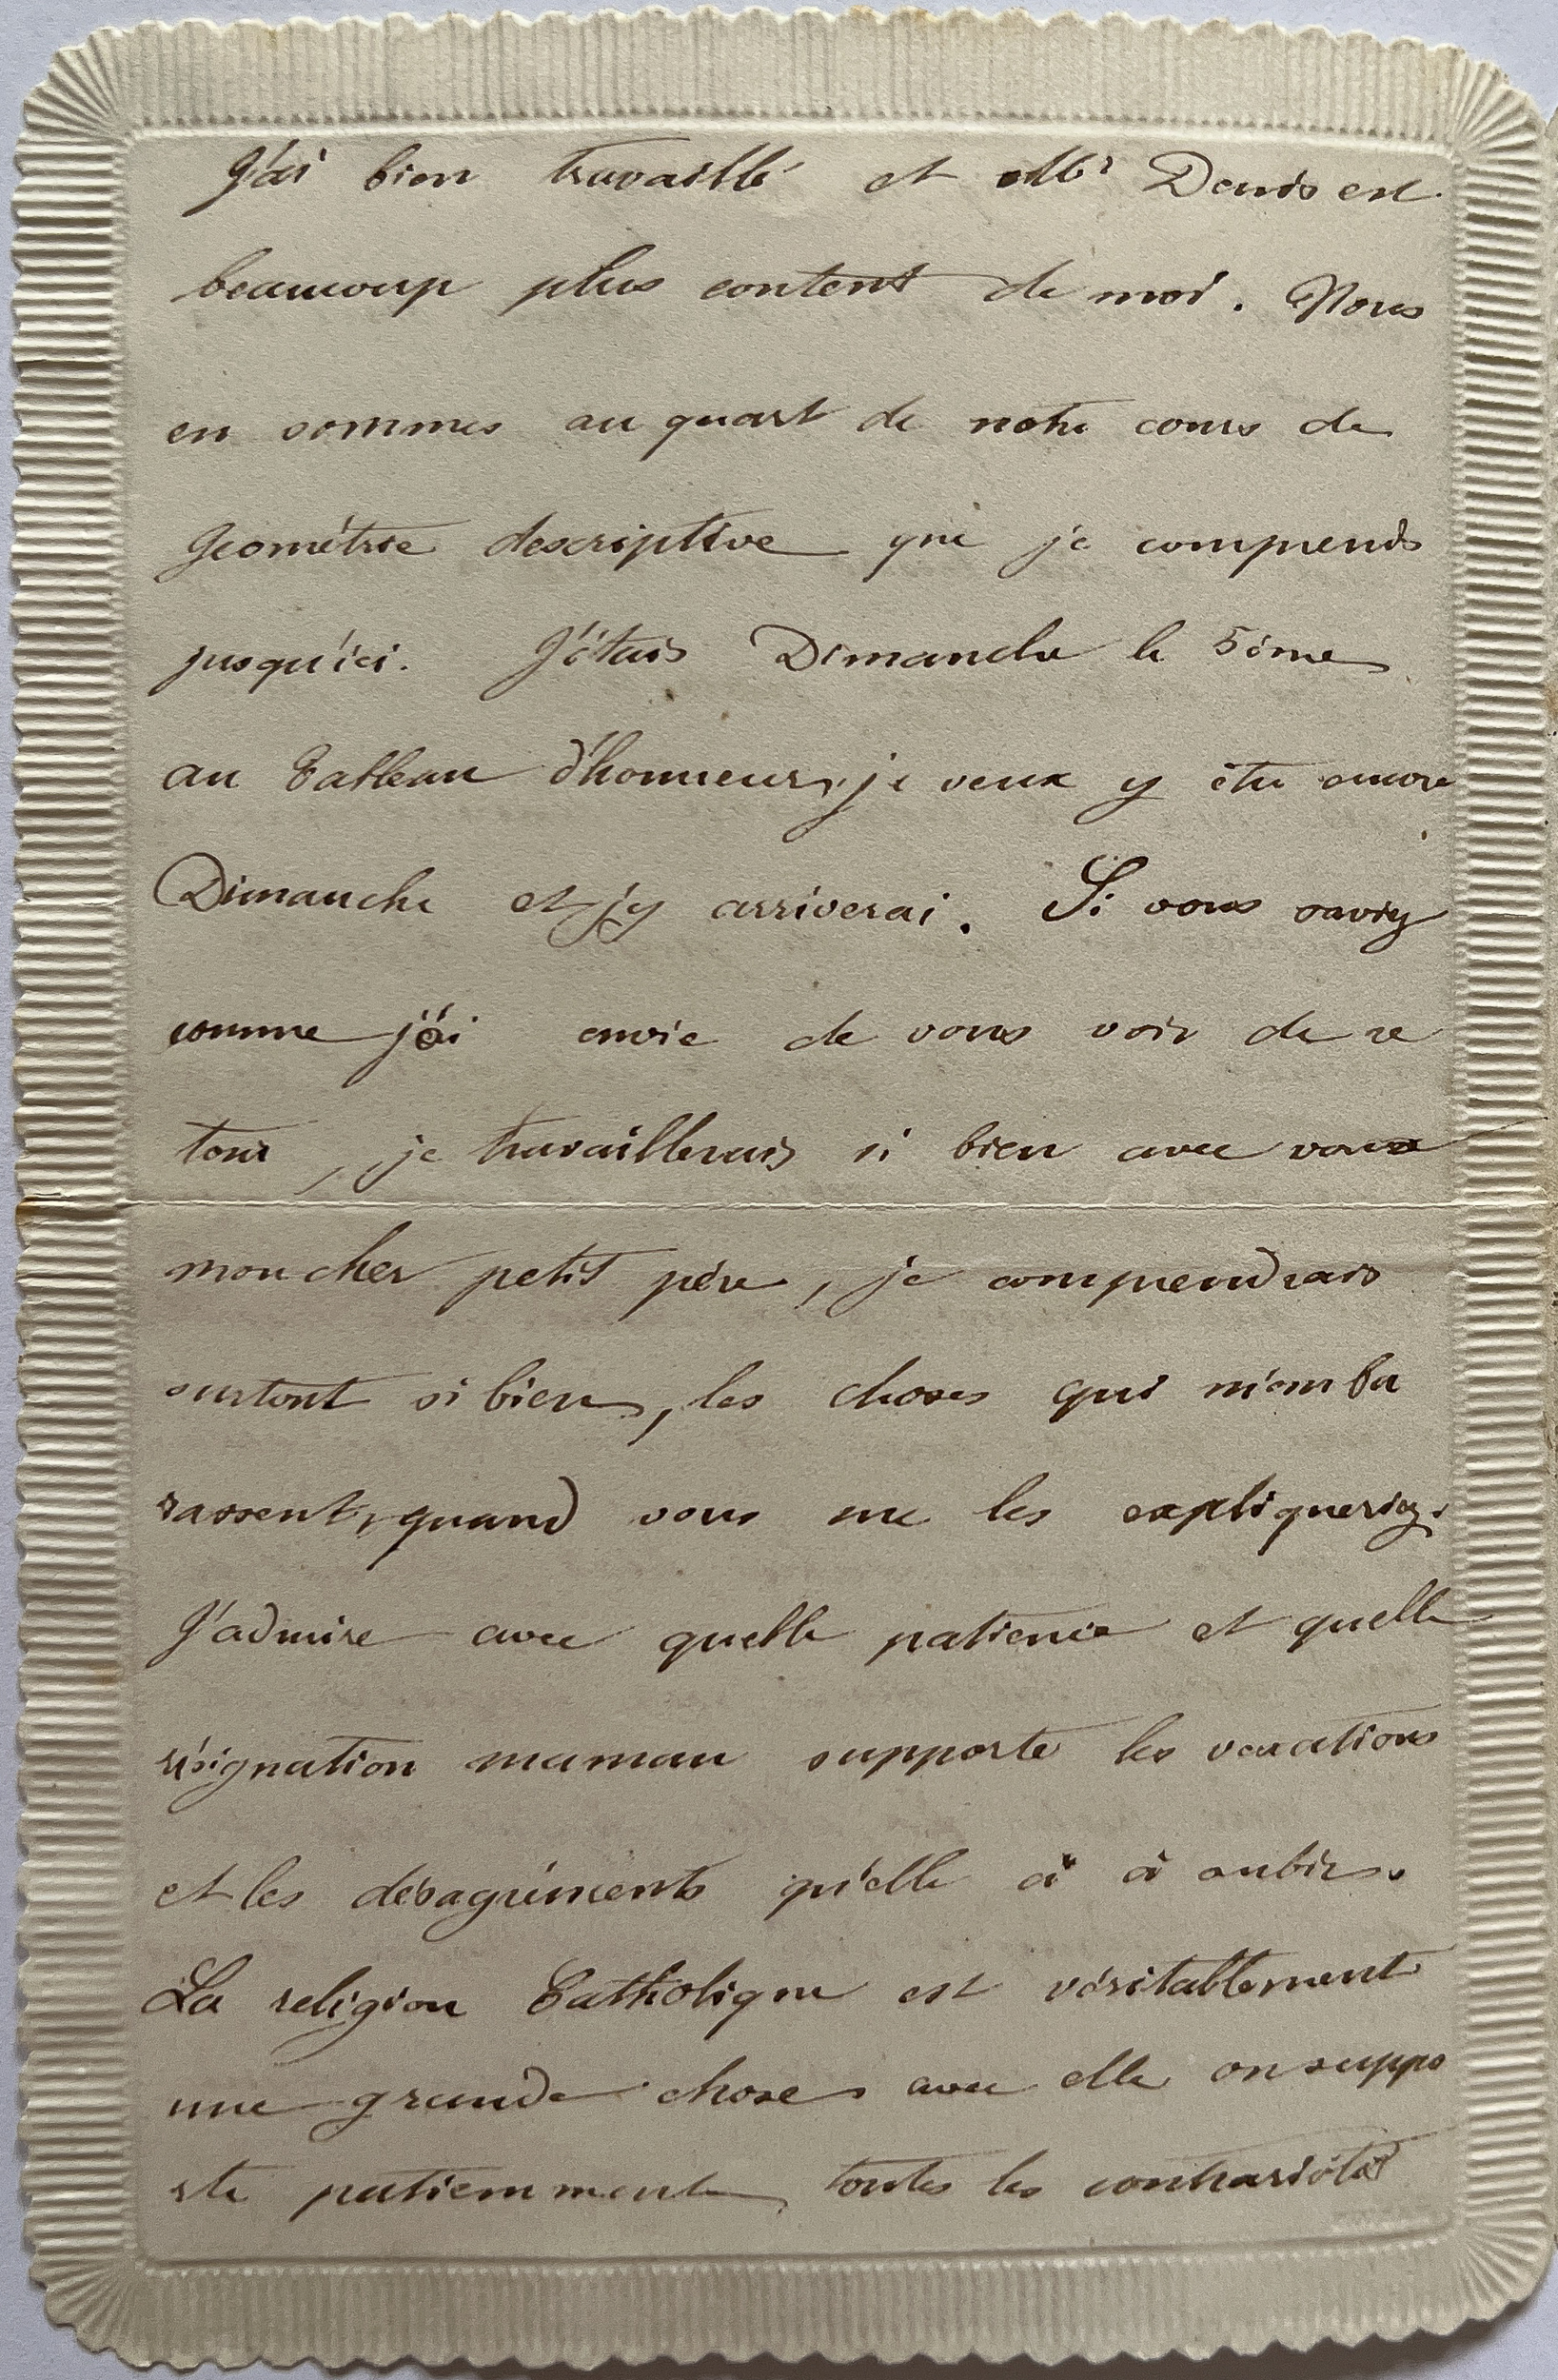 J'ai bien travaillé et Mr Denis est
beaucoup plus content de moi. Nous
en sommes au quart de notre cours de
Géométrie descriptive que je comprends
jusqu'ici. J'étais Dimanche le 5ème
au Tableau d'honneur, je veux y être encore
Dimanche et j'y arriverai. Si vous saviez
comme j'ai envie de vous voir de re
tour, je travaillerais si bien avec vous
mon cher petit père, je comprendrais
surtout si bien, les choses qui m'emba
rassent, quand vous me les expliqueriez.
J'admire avec quelle patience et quelle
résignation maman supporte les vexations
et les désagréments qu'elle à à subir.
La religion Catholique est véritablement
une grande chose, avec elle on suppo
rte patiemment toutes les contrariétés